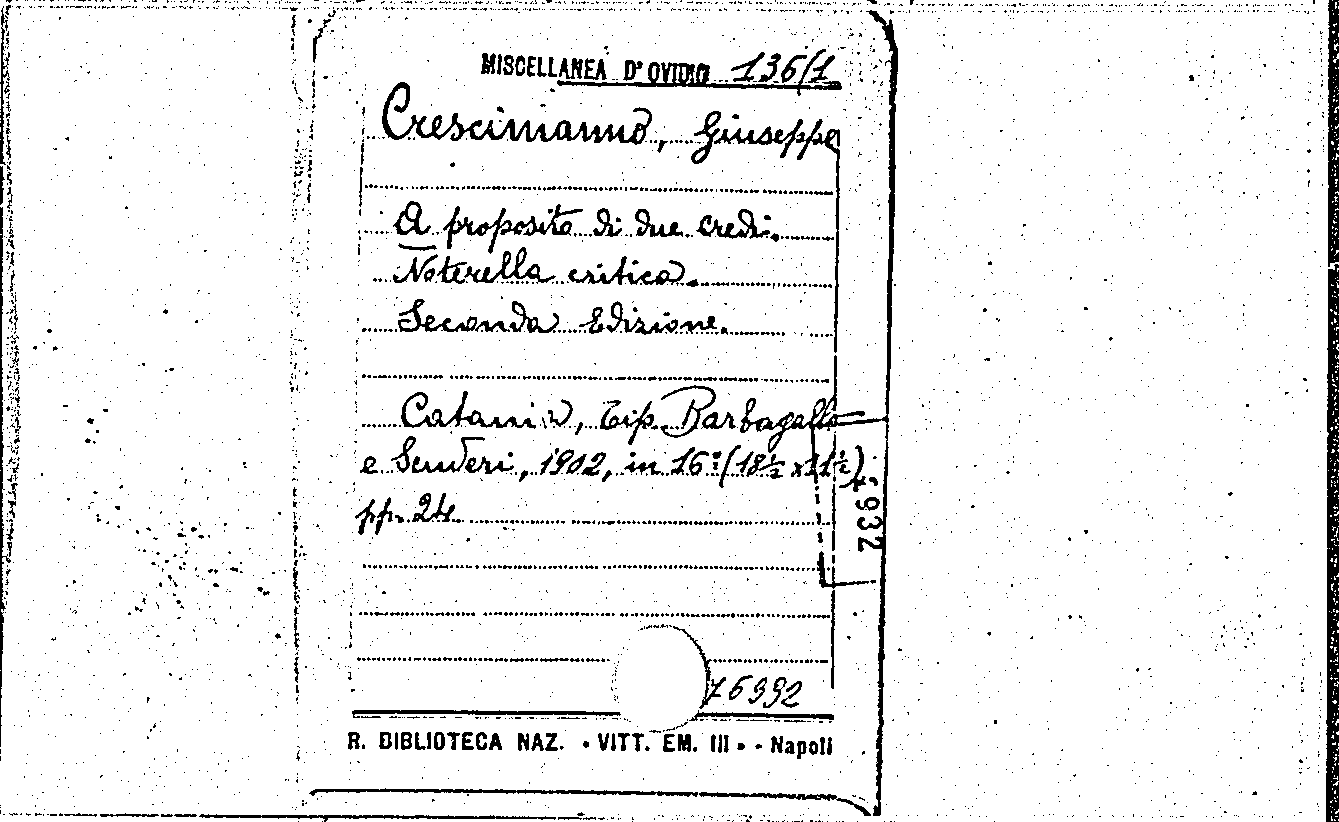 MISCELLANEA D'OVIDIO 136/1
Crescimanno, Giuseppe
A proposito di due credi.
Noterella critica.
Seconda Edizione.
Catania, Tip. Barbagallo
e Scuderi, 1902, in 16º (18½ x 11½)
pp. 24
932
76992
R. BIBLIOTECA NAZ. • VITT. EM. III • - Napoli